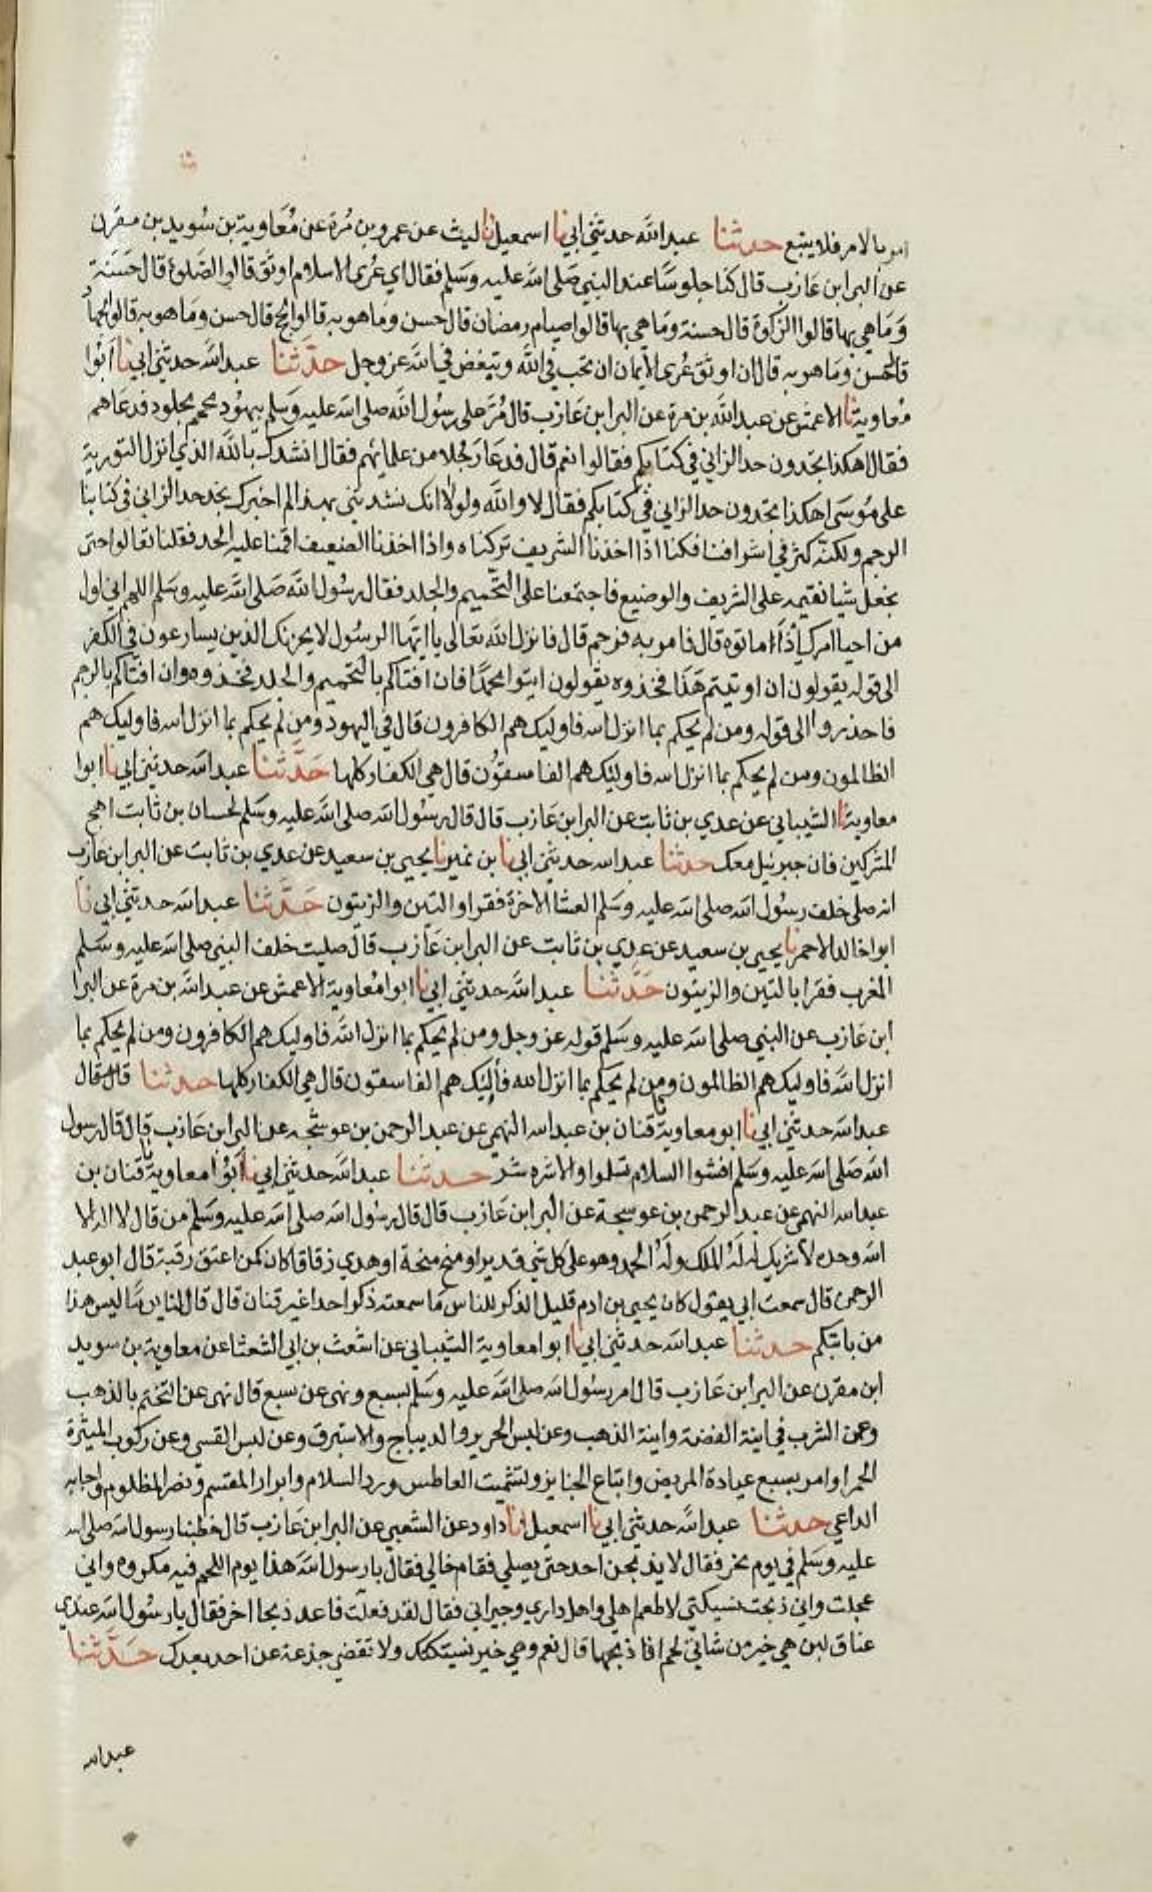 امر بالامر فلا يتبع حدثنا عبد الله حدثني ابي نا اسمعيل نا ليث عن عمرو بن مرة عن معاوية بن سويد بن مقرن
عن البرا بن عازب قال كنا جلوسا عند النبي صلى الله عليه وسلم فقال اي عرى الاسلام اوثق قالوا الصلوة قال حسنة
وما هي بها قالوا الزكوة قال حسنة وما هي بها قالوا صيام رمضان قال حسن وما هو به قالوا الحج قال حسن وما هو به قالوا الجهاد
قال حسن وما هو به قال ان اوثق عرى الايمان ان تحب في الله وتبغض في الله عز وجل حدثنا عبد الله حدثني ابي نا ابوا
معاوية نا الاعمش عن عبد الله بن مرة عن البرا بن عازب قال مر على رسول الله صلى الله عليه وسلم بيهودي محمم مجلود فدعاهم
فقال اهكذا تجدون حد الزاني في كتابكم فقالوا نعم قال فدعا رجلا من علمائهم فقال انشدك بالله الذي انزل التورية
على موسى اهكذا تجدون حد الزاني في كتابكم فقال لا والله ولولا انك نشدتني بهذا لم اخبرك نجد حد الزاني في كتابنا
الرجم ولكنه كثر في اشرافنا فكنا اذا اخذنا الشريف تركناه واذا اخذنا الضعيف اقمنا عليه الحد فقلنا تعالوا حتى
نجعل شيا نقيمه على الشريف والوضيع فاجتمعنا على التحميم والجلد فقال رسول الله صلى الله عليه وسلم اللهم اني اول
من احيا امرك اذ اماتوه قال فامر به فرجم قال فانزل الله تعالى يا ايها الرسول لا يحزنك الذين يسارعون في الكفر
الى قوله يقولون ان اوتيتم هذا فخذوه يقولون ايتوا محمدا فان افتاكم بالتحميم والجلد فخذوه وان افتاكم بالرجم
فاحذروا الى قوله ومن لم يحكم بما انزل الله فاوليك هم الكافرون قال في اليهود ومن لم يحكم بما انزل الله فاوليك هم
الظالمون ومن لم يحكم بما انزل الله فاوليك هم الفاسقون قال هي الكفار كلها حدثنا عبد الله حدثني ابي نا ابوا
معاوية نا الشيباني عن عدي بن ثابت عن البرا بن عازب قال قال رسول الله صلى الله عليه وسلم لحسان بن ثابت اهج
المشركين فان جبرئيل معك حدثنا عبد الله حدثني ابي نا بن نمير نا يحيى بن سعيد عن عدي بن ثابت عن البرا بن عازب
انه صلى خلف رسول الله صلى الله عليه وسلم العشا الاخرة فقرا والتين والزيتون حدثنا عبد الله حدثني ابي نا
ابو خالد الاحمر نا يحيى بن سعيد عن عدي بن ثابت عن البرا بن عازب قال صليت خلف النبي صلى الله عليه وسلم
المغرب فقرا بالتين والزيتون حدثنا عبد الله حدثني ابي نا ابوا معاوية الاعمش عن عبد الله بن مرة عن البرا
ابن عازب عن النبي صلى الله عليه وسلم قوله عز وجل ومن لم يحكم بما انزل الله فاوليك هم الكافرون ومن لم يحكم بما
انزل الله فاوليك هم الظالمون ومن لم يحكم بما انزل الله فاليك هم الفاسقون قال هي الكفار كلها حدثنا قال قال
عبد الله حدثني ابي نا ابو معاوية نا قنان بن عبد الله النهمي عن عبد الرحمن بن عوسجه عن البرا بن عازب قال قال رسول
الله صلى الله عليه وسلم افشوا السلام تسلموا والاشره شر حدثنا عبد الله حدثني ابي نا ابوا معاوية نا قنان بن
عبد الله النهمي عن عبد الرحمن بن عوسجة عن البرا بن عازب قال قال رسول الله صلى الله عليه وسلم من قال لا اله الا
الله وحده لا شريك له له الملك وله الحمد وهو على كل شي قدير او منح منحة او هدي زقاقا كان كمن اعتق رقبة قال ابو عبد
الرحمن قال سمعت ابي يقول كان يحيى بن ادم قليل الذكر للناس ما سمعته ذكر احدا غير قنان قال قال لنا يوما ليس هذا
من بابتكم حدثنا عبد الله حدثني ابي نا ابوا معاوية الشيباني عن اشعث بن ابي الشعثا عن معاوية بن سويد
ابن مقرن عن البرا بن عازب قال امر رسول الله صلى الله عليه وسلم بسبع ونهى عن سبع قال نهى عن التختم بالذهب
وعن الشرب في انية الفضة وانية الذهب وعن لبس الحرير والديباج والاستبرق وعن لبس القسي وعن ركوب الميثرة
الحمرا وامر بسبع عيادة المريض واتباع الجنايز وتشميت العاطس ورد السلام وابرار المقسم ونصر المظلوم واجابه
الداعي حدثنا عبد الله حدثني ابي نا اسمعيل انا داود عن الشعبي عن البرا بن عازب قال خطبنا رسول الله صلى الله
عليه وسلم في يوم نحر فقال لا يذبحن احد حتى يصلي فقام خالي فقال يا رسول الله هذا يوم اللحم فيه مكروه واني
عجلت واني ذبحت نسيكتي لاطعم اهلي واهل داري وجيراني فقال لقد فعلت فاعد ذبحا اخر فقال يا رسول الله عندي
عناق لبن هي خير من شاتي لحم افاذبحها قال نعم وهي خير نسيكتك ولا تقضي جذعة عن احد بعدك حدثنا
عبد الله